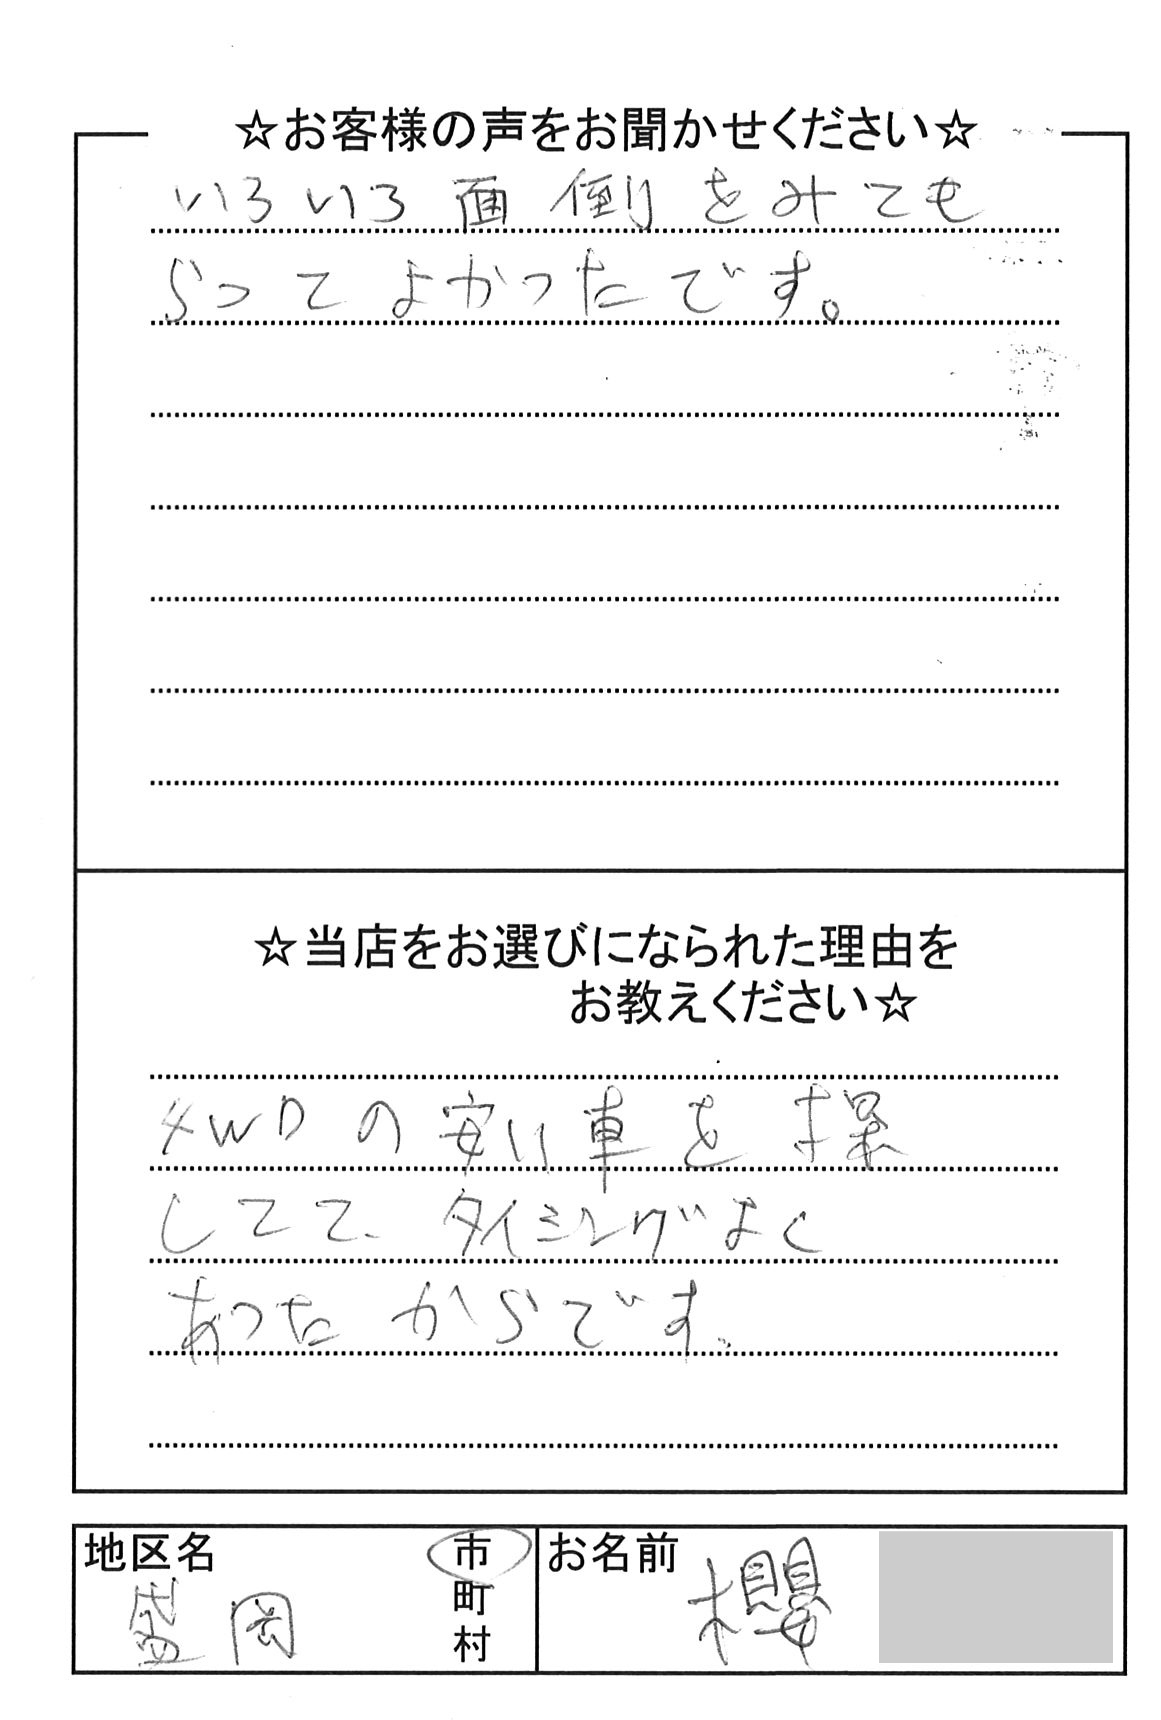 ☆お客様の声をお聞かせください☆
いろいろ面倒をみても
らってよかったです。
☆当店をお選びになられた理由を
お教えください☆
4WDの安い車を探
してて、タイミングよく
あったからです。
地区名
盛岡
市
町
村
お名前
櫻